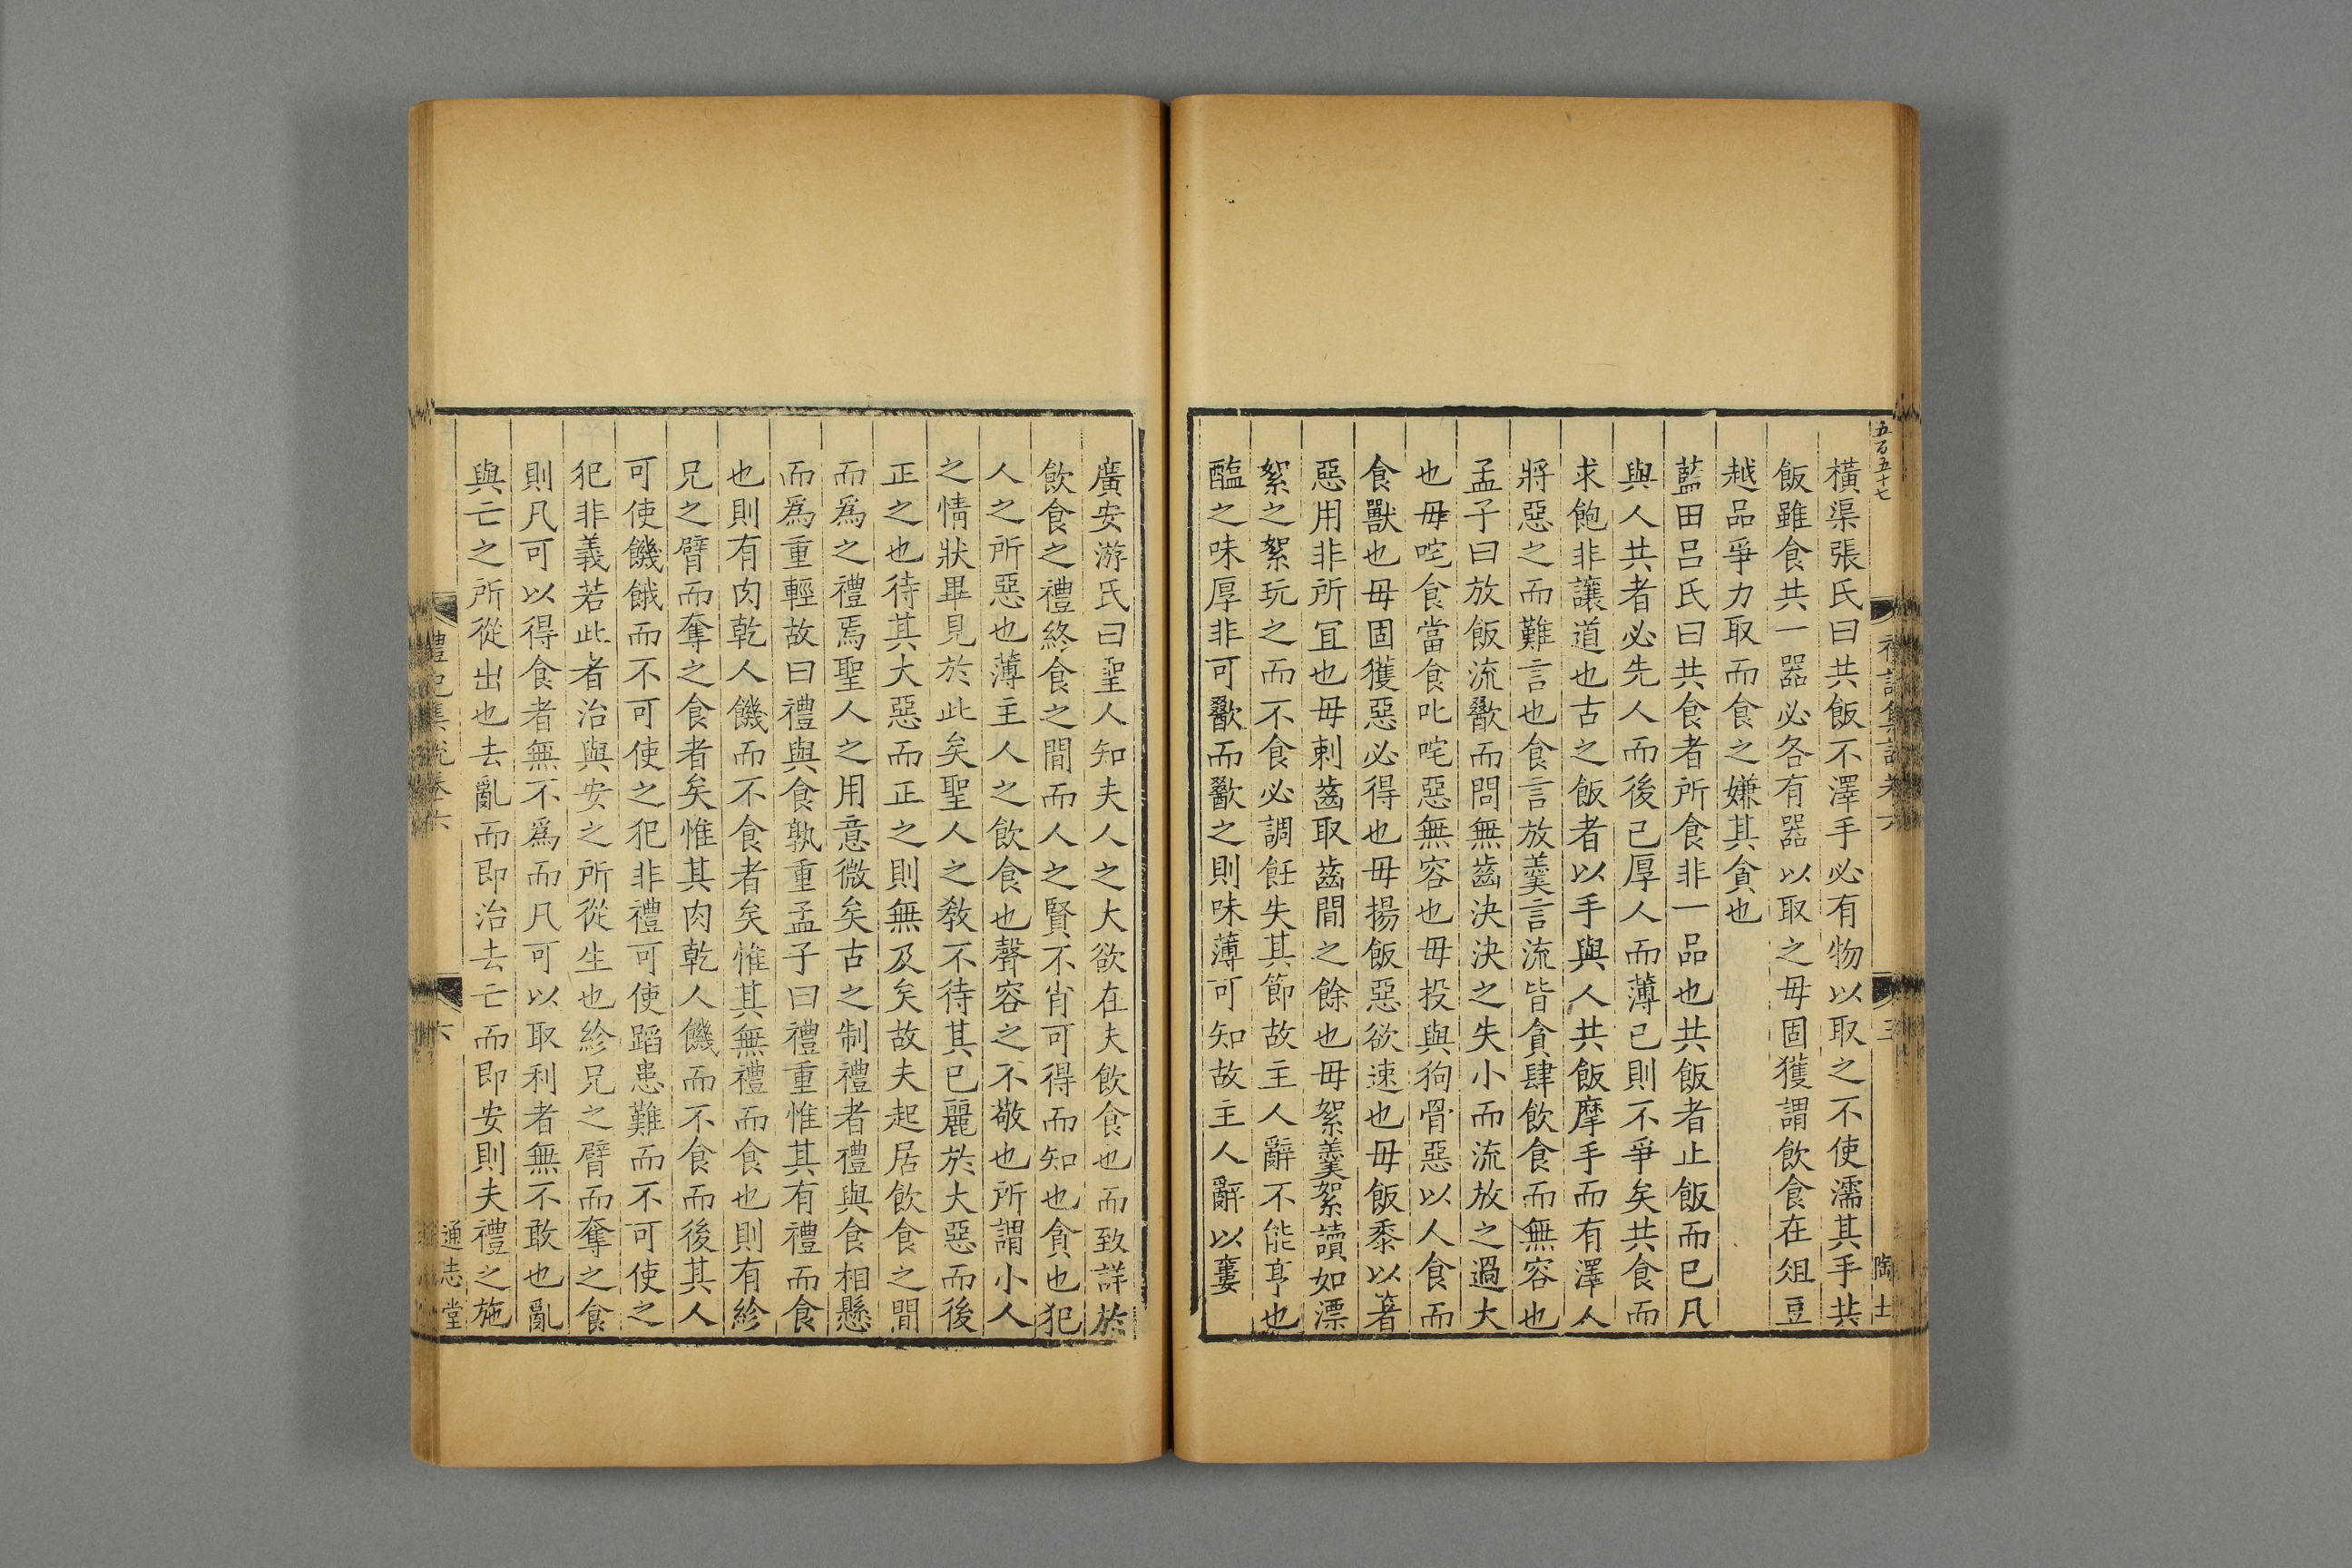 五百五十七
橫渠張氏曰共飯不澤手必有物以取之不使濡其手共
飯雖食共一器必各有器以取之毋固獲謂飲食在俎豆
越品爭力取而食之嫌其貪也
藍田呂氏曰共食者所食非一品也共飯者止飯而已凡
與人共者必先人而後己厚人而薄己則不爭矣共食而
求飽非讓道也古之飯者以手與人共飯摩手而有澤人
將惡之而難言也食言放羹言流皆貪肆飲食而無容也
孟子曰放飯流歠而問無齒決決之失小而流放之過大
也毋咤食當食叱咤惡無容也毋投與狗骨惡以人食而
食獸也毋固獲惡必得也毋揚飯惡欲速也毋飯黍以箸
惡用非所宜也毋刺齒取齒間之餘也毋絮羹絮讀如漂
絮之絮玩之而不食必調飪失其節故主人辭不能亨也
醢之味厚非可歠而歠之則味薄可知故主人辭以窶
廣安游氏曰聖人知夫人之大欲在夫飲食也而致詳於
飲食之禮終食之間而人之賢不肖可得而知也貪也犯
人之所惡也薄主人之飲食也聲容之不敬也所謂小人
之情狀畢見於此矣聖人之敎不待其已麗於大惡而後
正之也待其大惡而正之則無及矣故夫起居飲食之間
而爲之禮焉聖人之用意微矣古之制禮者禮與食相懸
而爲重輕故曰禮與食孰重孟子曰禮重惟其有禮而食
也則有肉乾人饑而不食者矣惟其無禮而食也則有紾
兄之臂而奪之食者矣惟其肉乾人饑而不食而後其人
可使饑餓而不可使之犯非禮可使蹈患難而不可使之
犯非義若此者治與安之所從生也紾兄之臂而奪之食
則凡可以得食者無不爲而凡可以取利者無不敢也亂
與亡之所從出也去亂而即治去亡而即安則夫禮之施
禮記集說卷六
六
通志堂